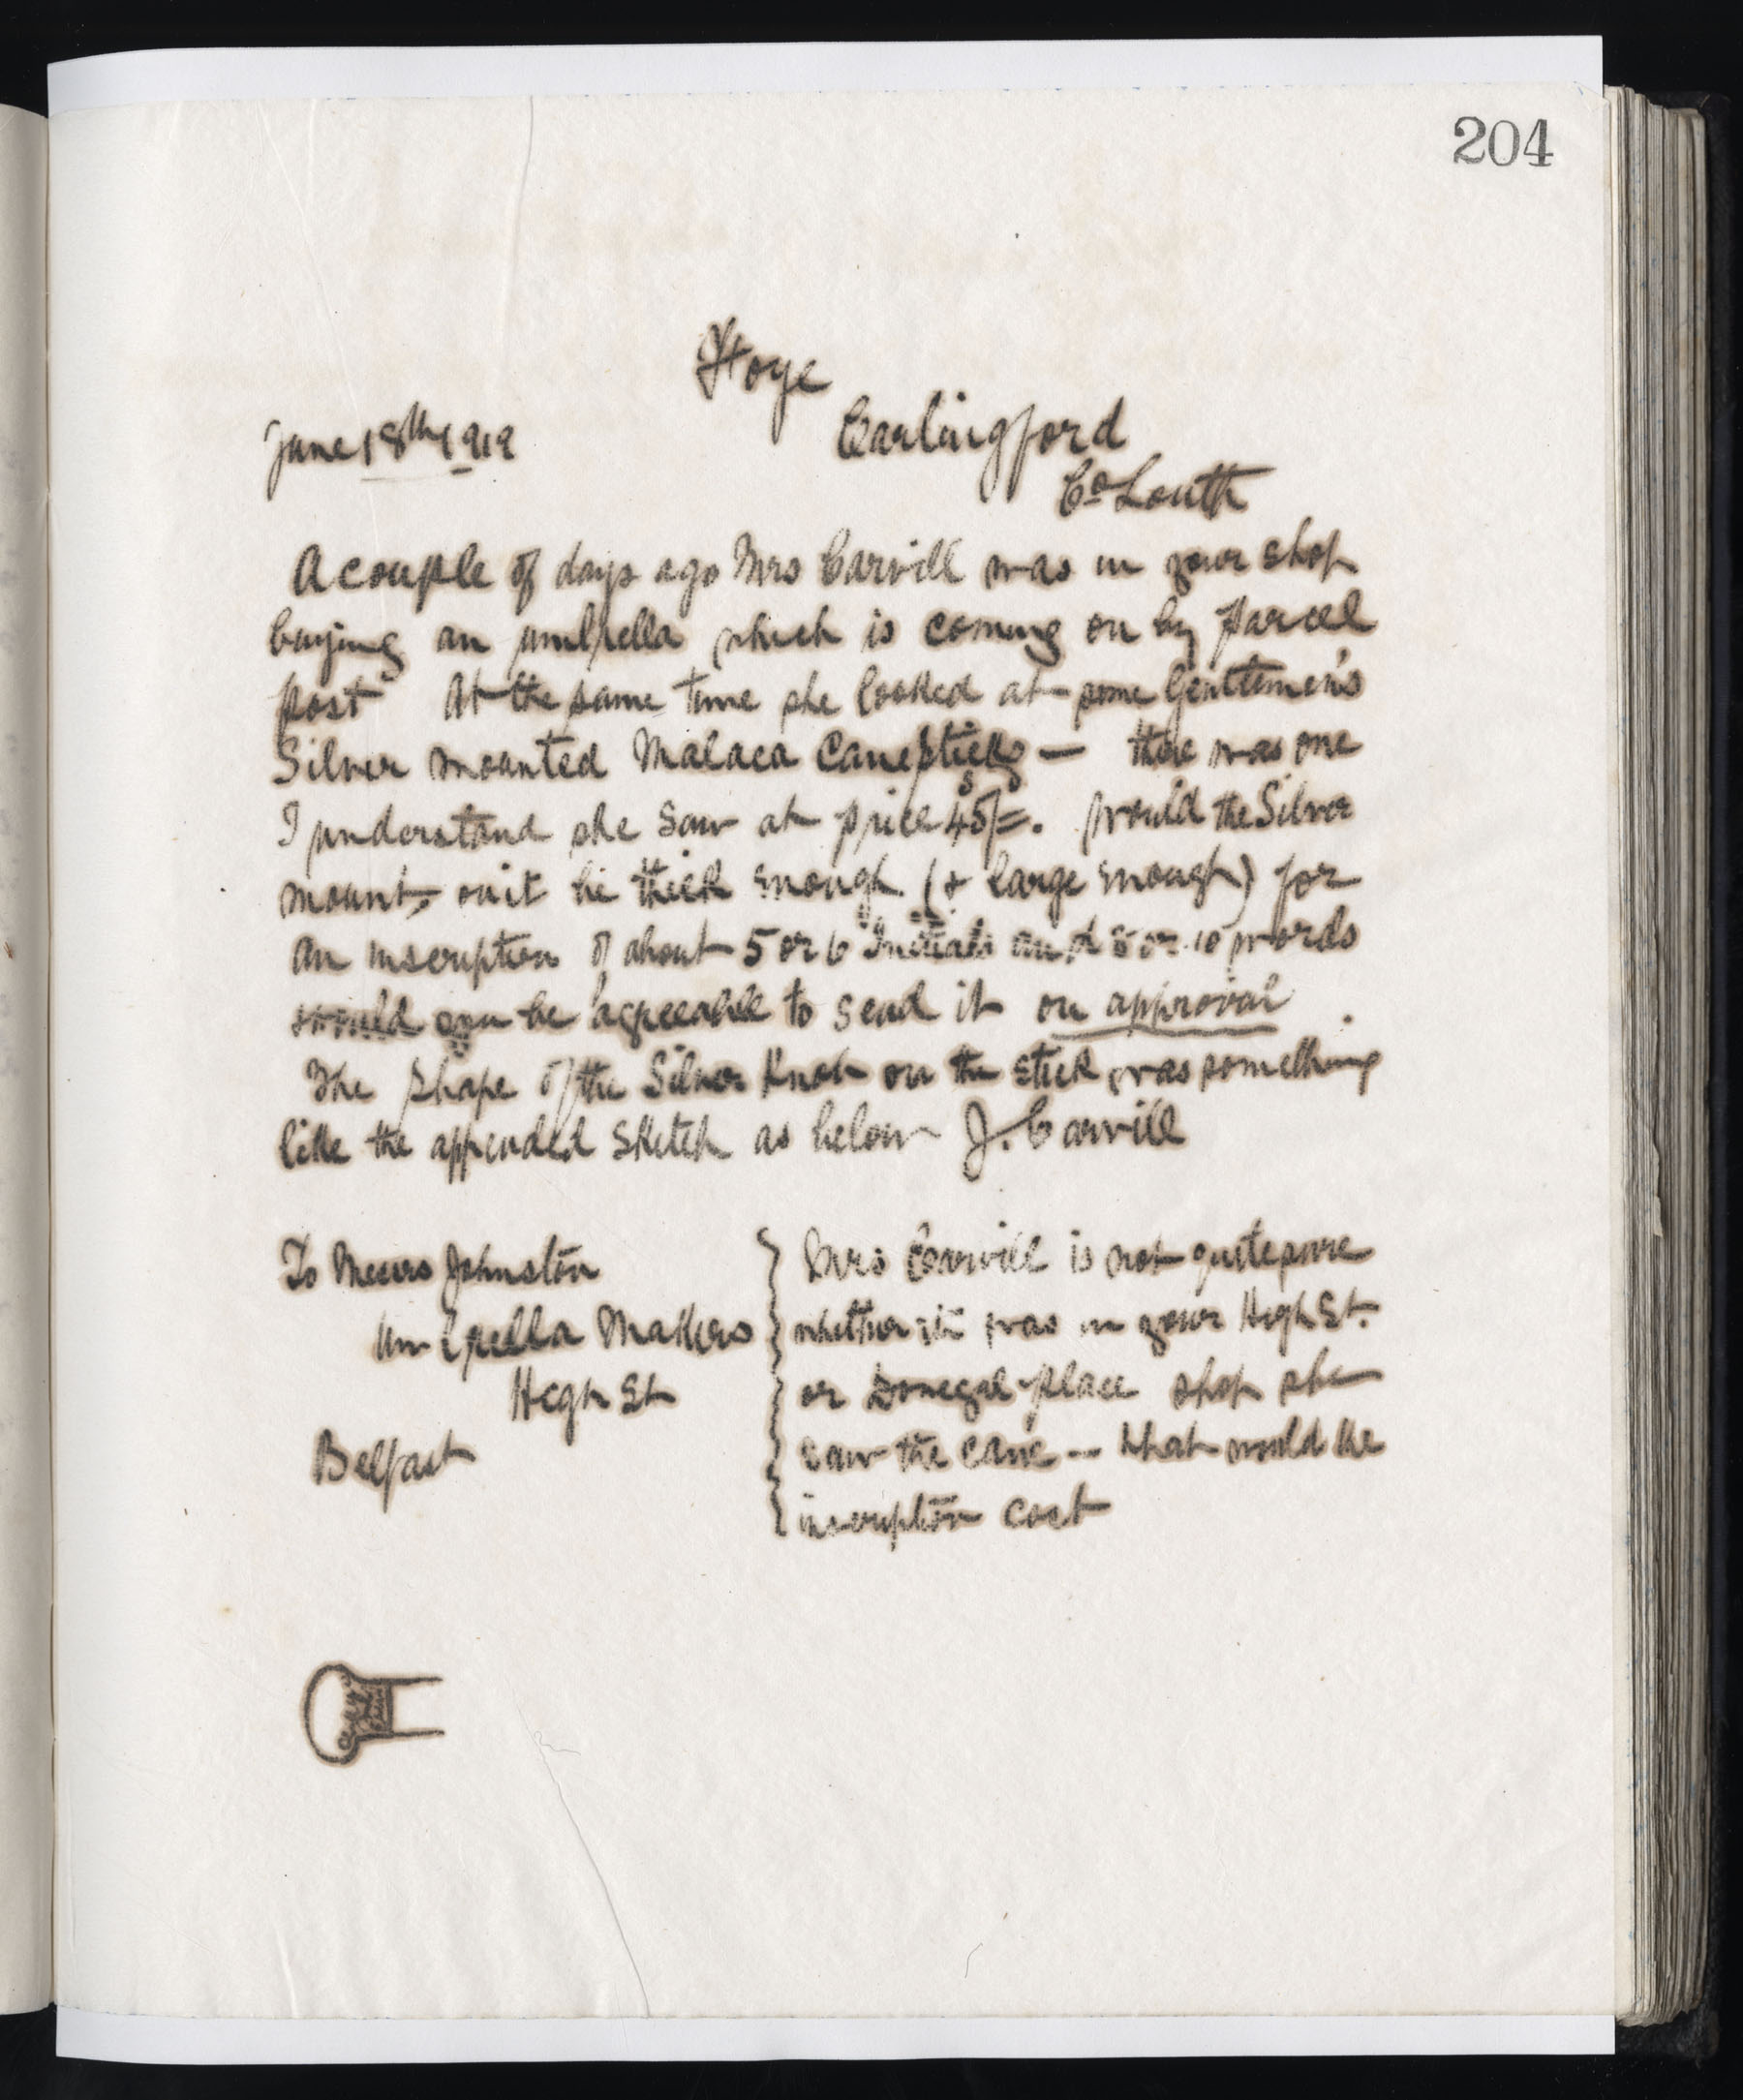 204
Hoye
June 18th 1912
Carlingford
Co Louth
A couple of days ago Mrs Carvill was in your shop
buying an umbrella which is coming on by parcel
post At the same time she looked at some Gentlemen's
Silver mounted Malaca Cane sticks — there was one
I understand she saw at price 45/=. Would the Silver
mount on it be thick enough (& large enough) for
an inscription of about 5 or 6 Initials and 8 or 10 words
would you be agreeable to send it on approval.
The shape of the Silver Knob on the stick was something
like the appended sketch as below J. Carvill
To Messrs Johnston
Umbrella Makers
High St
Belfast
Mrs Carvill is not quite sure
whether it was in your High St.
or Donegal place shop she
saw the cane -- What would the
inscription cost